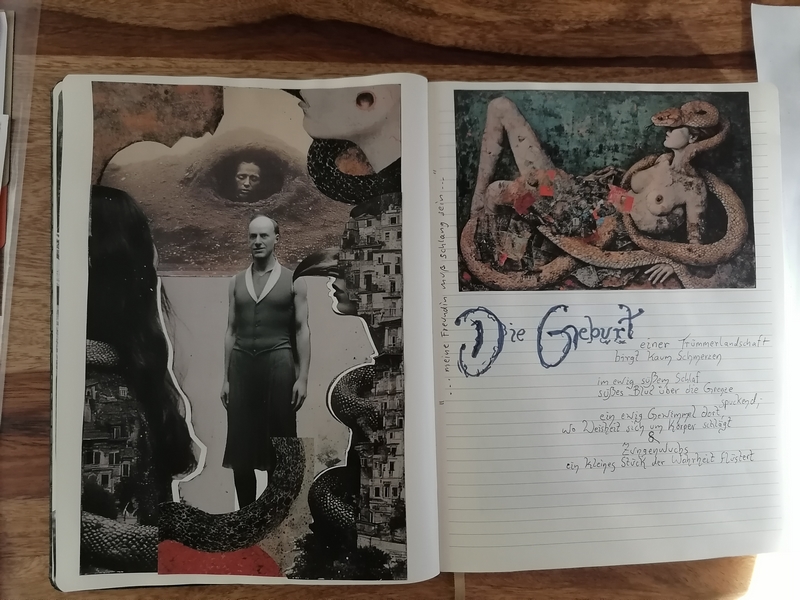 "...meine Freundin muß schlang sein..."
Die Geburt einer Trümmerlandschaft
birgt kaum Schmerzen
im ewig süßem Schlaf
süßes Blut über die Grenze
spuckend;
ein ewig Gewimmel dort,
wo Weisheit sich um Körper schlägt
&
Zungenwuchs
ein kleines Stück der Wahrheit flüstert